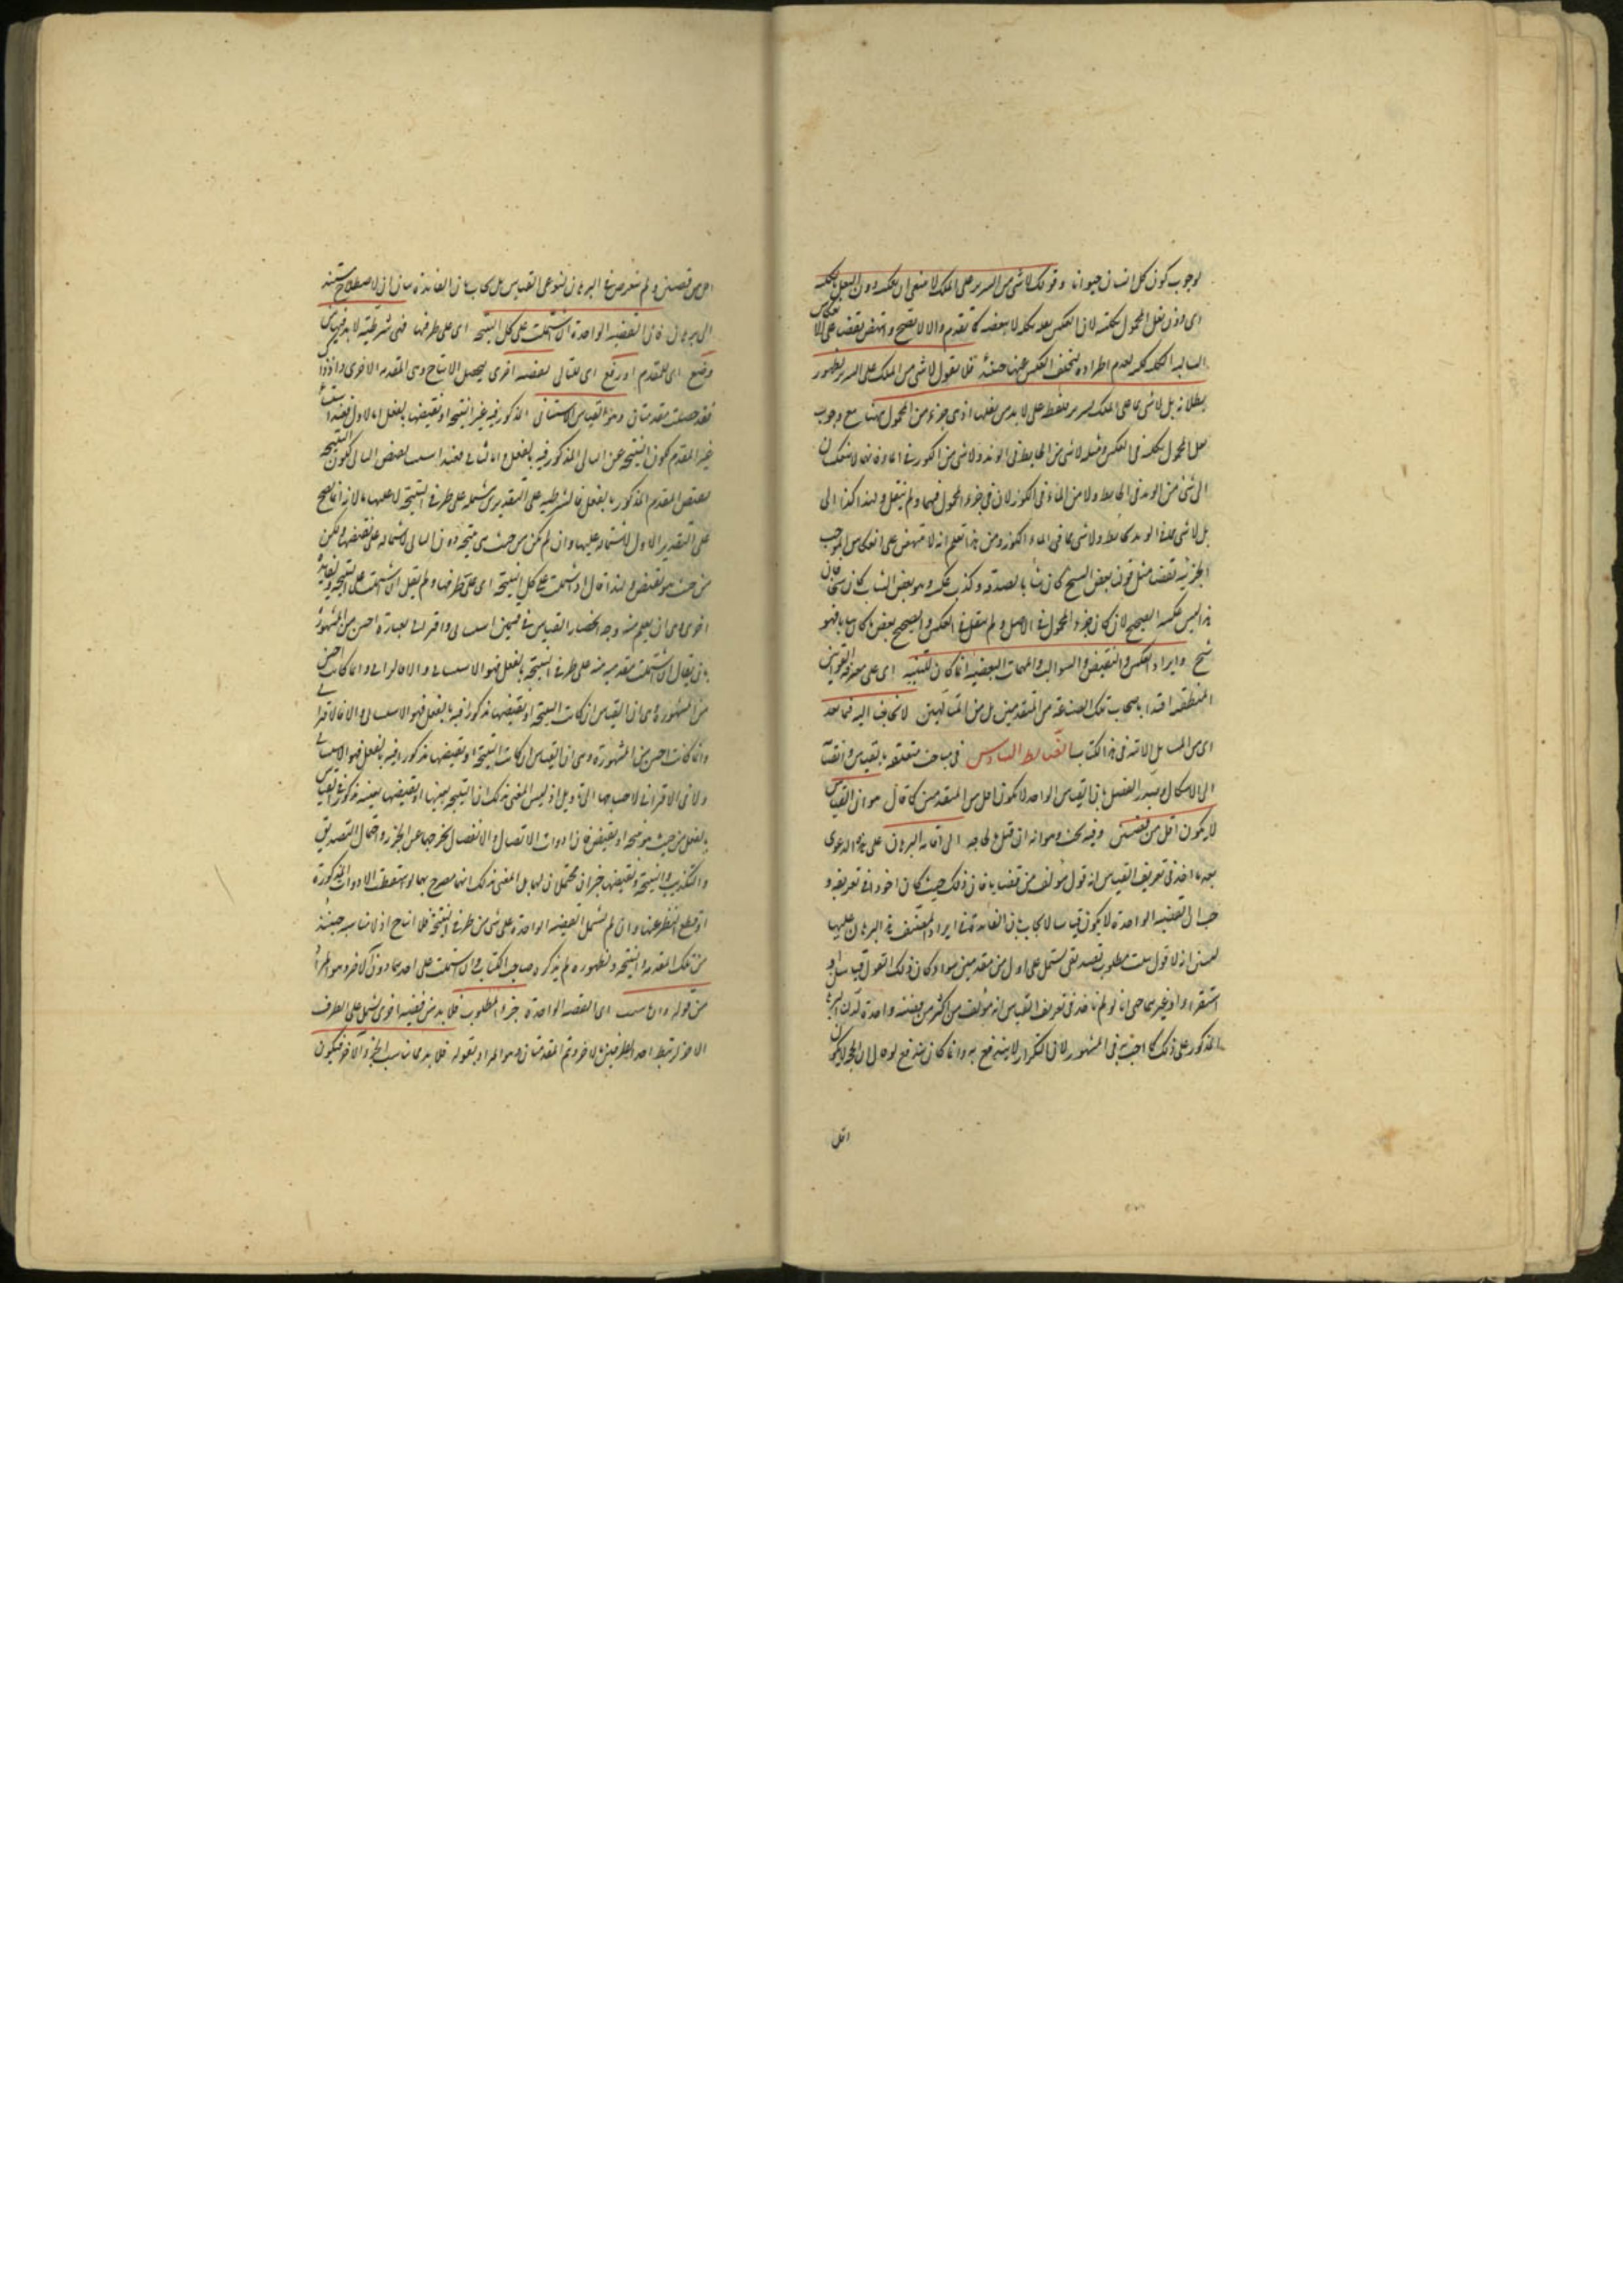 لوجوب كون كل انسان حيوانا وقولك لا شي من السرير على الملك لا ينبغي ان يعكس دون النقل بكله
اى دون نقل المحمول بكليته لان العكس بكله لا ببعضه كما تقدم والا لا يصح وانتهض نقضا على انعكاس
السالبة الكلية لعدم اطراده لتخلف العكس عنها حينئذ فلا نقول لا شي من الملك على السرير لظهور
بطلانه بل لا شي مما على الملك بسرير فلفظ على لا بد من نقلها اذ هى جزء من المحمول ههنا مع وجوب
نقل المحمول بكله فى العكس ومثله لا شى من الحايط فى الوتد ولا شى من الكوز فى الماء فانهما لا ينعكسان
الى لا شئ من الوتد فى الحايط ولا من الماء فى الكوز لان فى جزء المحول فيهما ولم ينقل
بل لا شى مما فى الوتد بحايط ولا شى مما فى الماء بكوز ومن هذا تعلم انه لا ينتهض على انعكاس الموجب
الجزئية نقضا مثل قولنا بعض الشيخ كان شابا لصدقه وكذب عكسه وهو بعض الشاب كان شيخا فان
هذا ليس عكسه الصحيح لان كان جزء المحمول فى الاصل ولم ينقل فى العكس والصحيح بعض من كان شابا فهو
شيخ وايراد العكس والنقيض والسوالب والمهملات البعضية انما كان للتنبيه اى على معرفة القوانين
المنطقية اقتداء باصحاب تلك الصناعة من المتقدمين بل من المتألهين لا لحاجتنا اليه فيما بعد
اى من المسايل الاتية فى هذا الكتاب الضابط السادس فى مباحث متعلقة بالقياس وانقسامه
الى الاشكال ويصدر الفصل بان القياس الواحد لا يكون اقل من المقدمتين كما قال هو ان القياس
لا يكون اقل من قضيتين وفيه بحث وهو انه ان قيل لا حاجة الى اقامة البرهان على هذه الدعوى
بعد ما اخذ فى تعريف القياس انه قول مؤلف من قضايا فان ذلك حيث كان ماخوذا فى تعريفه و
القضية الواحدة لا يكون قياسا لا يجاب بان الفائدة فى ايراد المصنف هذا البرهان عليها
انه لا قول يثبت مطلوب تصديقى يشتمل على اقل من مقدمتين سواء كان ذلك القول قياسا او
استقراء او غيرهما حتى انا لو لم ناخذ فى تعريف القياس انه مؤلف من اكثر من قضية واحدة لدل البرهان
المذكور على ذلك كما اجيب به فى المشهور لان التكرار لا يندفع به وانما كان يندفع لو قال ان الحجة لا يكون
اقل
اقل من قضيتين ولم يتعرض فى البرهان لنوعى القياس بل يجاب بان الفائدة بيان ان الاصطلاح مستند
الى برهان فان القضية الواحدة ان اشتملت على كل النتيجة اى على طرفيها فهى شرطية لا بد فيها من
وضع اى للمقدم او رفع اى للتالى بقضية اخرى ليحصل الانتاج وهى المقدمة الاخرى واذ ذاك
فقد حصلت مقدمتان وهو القياس الاستثنائى المذكور فيه عين النتيجة او نقيضها بالفعل اما الاول فعند استثناء
عين المقدم لكون النتيجة عين التالى المذكور فيه بالفعل واما الثانى فعند استثناء نقيض التالى لكون النتيجة
نقيض المقدم المذكور بالفعل فالشرطية على التقديرين مشتملة على طرفى النتيجة لا عليها لانه انما يصح
على التقدير الاول لاشتماله عليها وان لم يكن من حيث هى نتيجة دون الثانى لاشتماله على نقيضها ولكن
من حيث هو نقيض ولهذا قال ان اشتملت على كل النتيجة اى على طرفيها ولم يقل ان اشتملت على النتيجة ولفايدة
اخرى وهى ان يعلم منه وجه انحصار القياس فى قسمين استثنائى واقترانى بعبارة احسن من المشهورة
بان يقال ان اشتملت مقدمة منه على طرفى النتيجة بالفعل فهو الاستثنائى والا فالاقترانى وانما كانت احسن
من المشهورة وهى ان القياس ان كانت النتيجة او نقيضها مذكورا فيه بالفعل فهو الاستثنائى والا فالاقترانى
وانما كانت احسن من المشهورة وهى ان القياس ان كانت النتيجة او نقيضها مذكورا فيه بالفعل فهو الاستثنائى
والا فالاقترانى لاحتياجها الى تاويل اذ ليس المعنى بذلك ان النتيجة بعينها او نقيضها بعينه مذكور فى القياس
بالفعل من حيث هو نتيجة او نقيض فان ادوات الاتصال والانفصال تخرجها عن الخبر واحتمال التصديق
والتكذيب والنتيجة ونقيضها خبران محتملان لهما بل المعنى بذلك انهما مصرح بهما لو اسقطت الادوات المذكورة
او قطع النظر عنها وان لم تشتمل القضية الواحدة على شى من طرفى النتيجة فلا انتاج اذ لا مناسبة حينئذ
بين تلك المقدمة والنتيجة ولظهوره لم يذكره صاحب الكتاب وان اشتملت على احدهما دون الاخر وهو المراد
من قوله وان ناسبت اى القضية الواحدة جزء المطلوب فلا بد من قضية اخرى تشتمل على الطرف
الاخر ليرتبط احد الطرفين بالاخر وتم المقدمتان وهو المراد بقوله فلا بد مما يناسب الجزء الاخر فيكون